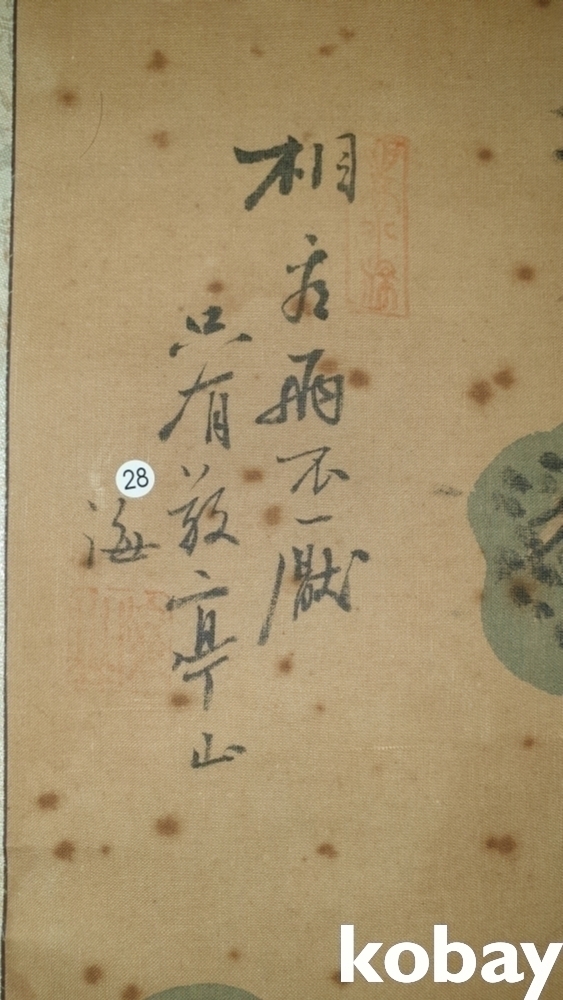 相看兩不厭
只有敬亭山
海
28
kobay